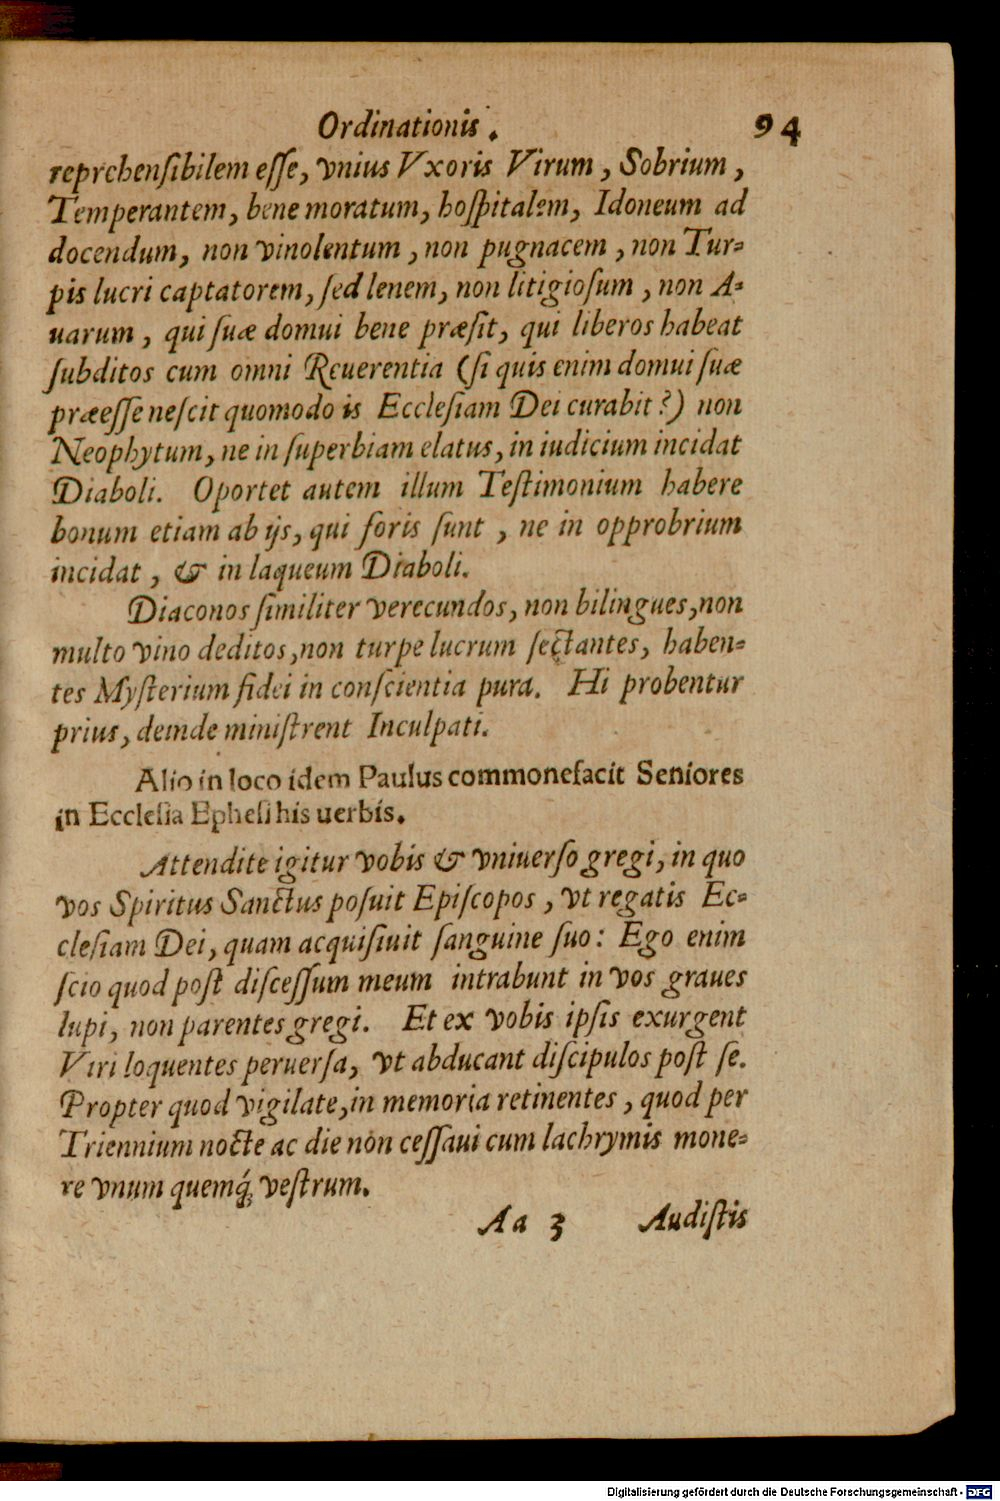 Ordinationis. 94
reprehenſibilem eſſe, vnius Vxoris Virum, Sobrium,
Temperantem, bene moratum, hoſpitalem, Idoneum ad
docendum, non vinolentum, non pugnacem, non Tur-
pis lucri captatorem, ſed lenem, non litigioſum, non A-
uarum, qui ſuæ domui bene præſit, qui liberos habeat
ſubditos cum omni Reuerentia (ſi quis enim domui ſuæ
præeſſe neſcit quomodo is Eccleſiam Dei curabit?) non
Neophytum, ne in ſuperbiam elatus, in iudicium incidat
Diaboli. Oportet autem illum Teſtimonium habere
bonum etiam ab ijs, qui foris ſunt, ne in opprobrium
incidat, & in laqueum Diaboli.
Diaconos ſimiliter verecundos, non bilingues, non
multo vino deditos, non turpe lucrum ſectantes, haben-
tes Myſterium fidei in conſcientia pura. Hi probentur
prius, deinde miniſtrent Inculpati.
Alio in loco idem Paulus commonefacit Seniores
in Eccleſia Epheſi his uerbis.
Attendite igitur vobis & vniuerſo gregi, in quo
vos Spiritus Sanctus poſuit Epiſcopos, vt regatis Ec-
cleſiam Dei, quam acquiſiuit ſanguine ſuo: Ego enim
ſcio quod poſt diſceſſum meum intrabunt in vos graues
lupi, non parentes gregi. Et ex vobis ipſis exurgent
Viri loquentes peruerſa, vt abducant diſcipulos poſt ſe.
Propter quod vigilate, in memoria retinentes, quod per
Triennium nocte ac die non ceſſaui cum lachrymis mone-
re vnum quemq́; veſtrum.
Aa 3 Audiſtis
Digitalisierung gefördert durch die Deutsche Forschungsgemeinschaft - DFG